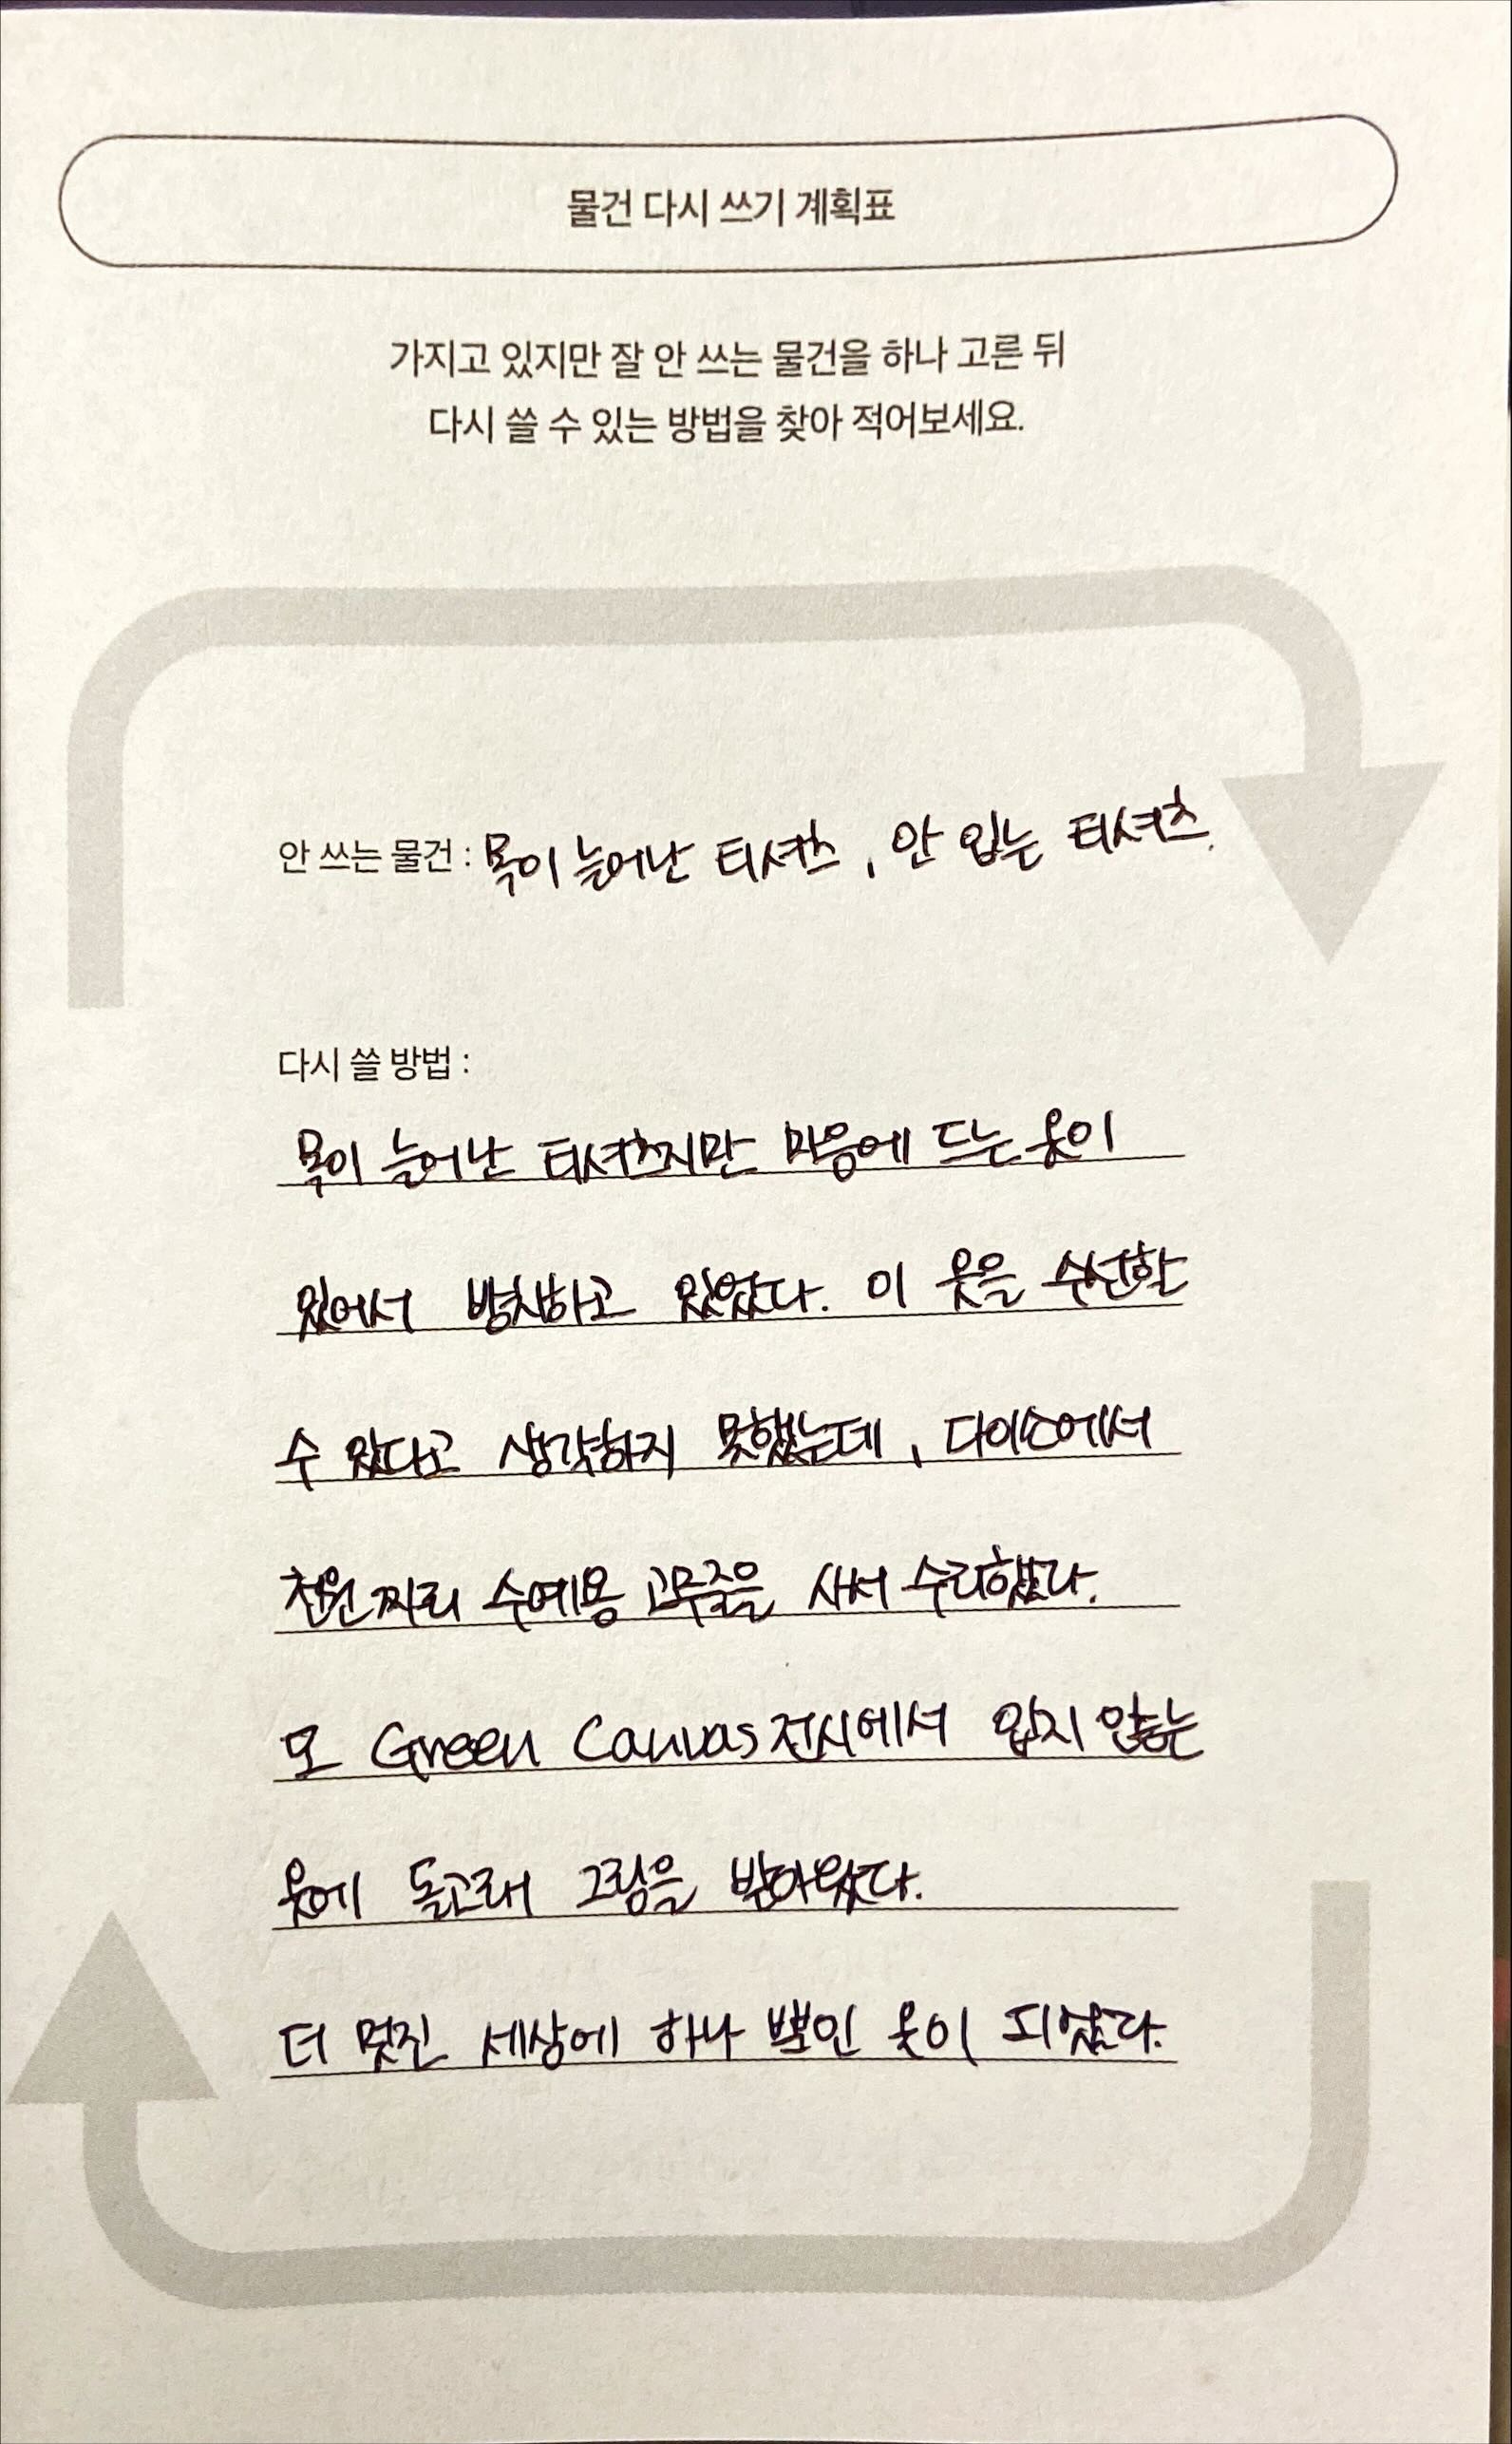 물건 다시 쓰기 계획표
가지고 있지만 잘 안 쓰는 물건을 하나 고른 뒤
다시 쓸 수 있는 방법을 찾아 적어보세요.
안 쓰는 물건 : 목이 늘어난 티셔츠, 안 입는 티셔츠.
다시 쓸 방법 :
목이 늘어난 티셔츠지만 마음에 드는 옷이
있어서 방치하고 있었다. 이 옷을 수선할
수 있다고 생각하지 못했는데, 다이소에서
천원 짜리 수예용 고무줄을 사서 수리했다.
또 Green Canvas 전시에서 입지 않는
옷에 돌고래 그림을 받아왔다.
더 멋진 세상에 하나 뿐인 옷이 되었다.